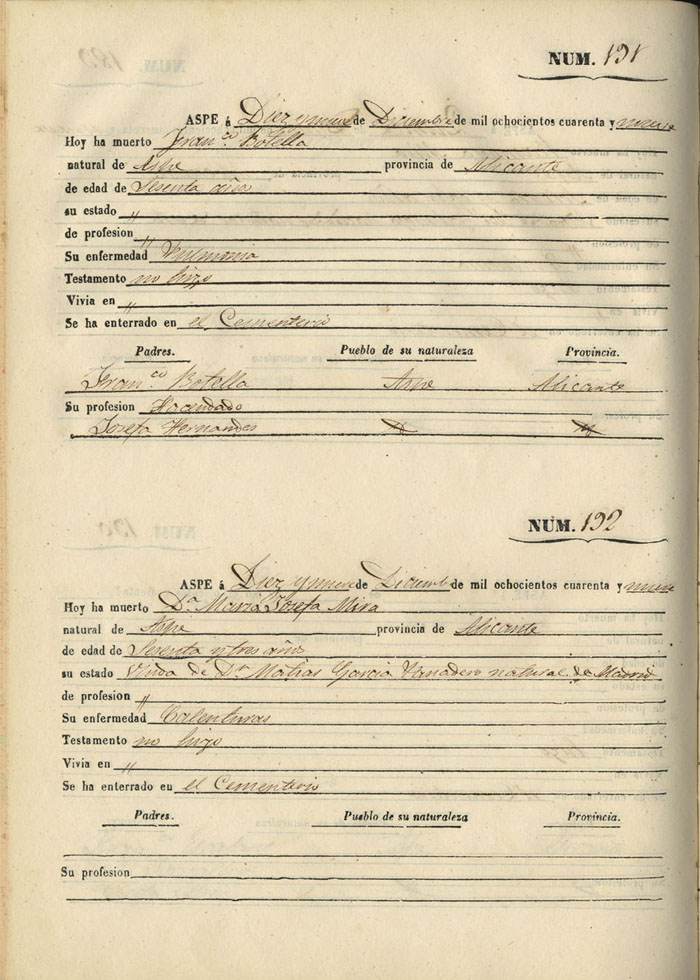 NUM. 191
ASPE á Diez y nueve de Diciembre de mil ochocientos cuarenta y nueve
Hoy ha muerto Fran.co Botella
natural de Aspe provincia de Alicante
de edad de Sesenta años
su estado "
de profesion "
Su enfermedad Pulmonia
Testamento no hizo
Vivia en "
Se ha enterrado en el Cementerio
Padres. Pueblo de su naturaleza Provincia.
Fran.co Botella Aspe Alicante
Su profesion Hacendado
Josefa Hernandes
NUM. 192
ASPE á Diez y nueve de Diciemb de mil ochocientos cuarenta y nueve
Hoy ha muerto D.a Maria Josefa Mira
natural de Aspe provincia de Alicante
de edad de Sesenta y tres años
su estado Viuda de D.n Matias Garcia natural de Madrid
de profesion "
Su enfermedad Calenturas
Testamento no hizo
Vivia en "
Se ha enterrado en el Cementerio
Padres. Pueblo de su naturaleza Provincia.
Su profesion